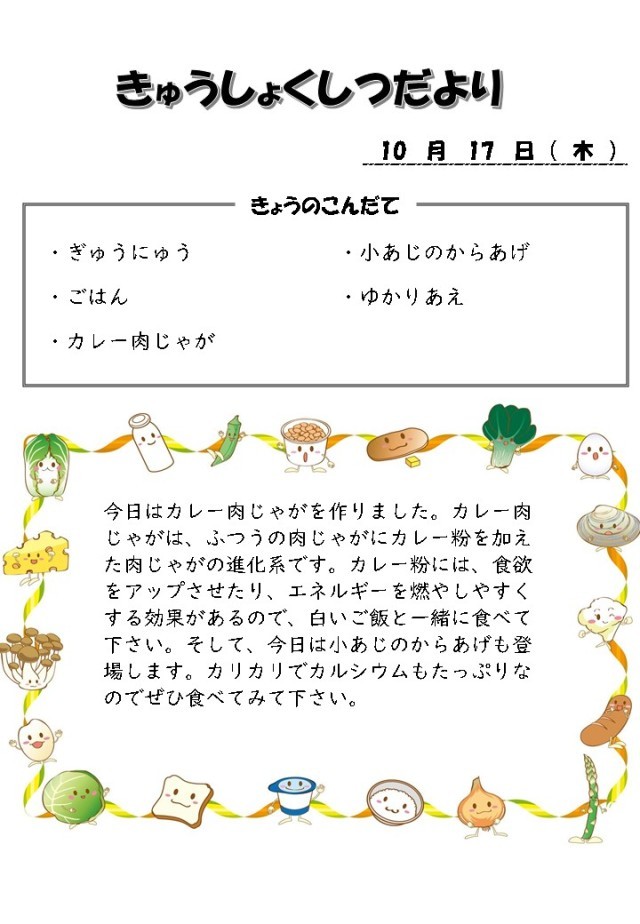 きゅうしょくしつだより
10 月 17 日 ( 木 )
きょうのこんだて
・ぎゅうにゅう
・ごはん
・カレー肉じゃが
・小あじのからあげ
・ゆかりあえ
今日はカレー肉じゃがを作りました。カレー肉
じゃがは、ふつうの肉じゃがにカレー粉を加え
た肉じゃがの進化系です。カレー粉には、食欲
をアップさせたり、エネルギーを燃やしやすく
する効果があるので、白いご飯と一緒に食べて
下さい。そして、今日は小あじのからあげも登
場します。カリカリでカルシウムもたっぷりな
のでぜひ食べてみて下さい。